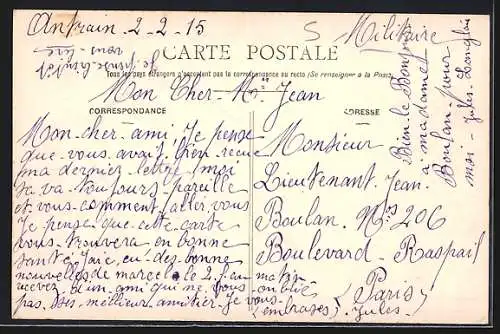 Antrain 2-2-15
S Militaire
CARTE POSTALE
Tous les pays étrangers n'acceptent pas la correspondance au recto (Se renseigner à la Poste)
Mon Cher Mr Jean
CORRESPONDANCE
ADRESSE
Mon cher ami, Je pense
que vous avait bien recue
ma dernier lettre, moi
sa va toujours pareille
et vous comment aller vous
Je pense que cette carte
vous trouvera en bonne
santé, J'aie eu des bonne
nouvelles de marcel le 2 au matin
recevez d'un ami qui ne vous oublie
pas. Ses meilleur amitier Je vous
(embrasse) Jules
Monsieur
Lieutenant Jean
Boulan. No 206
Boulevard Raspail
(Paris)
Bien le Bonjour
à madame
Boulan pour
moi - Jules